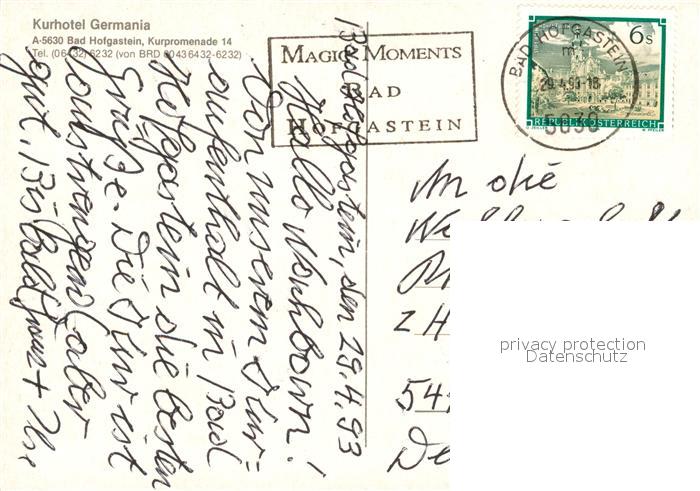 Kurhotel Germania
A-5630 Bad Hofgastein, Kurpromenade 14
Tel. (06432) 6232 (von BRD 0043 6432-6232)
MAGIC MOMENTS
BAD
HOFGASTEIN
BAD HOFGASTEIN
29.4.93-18
5630
6 S
REPUBLIK ÖSTERREICH
Bad Hofgastein, den 29.4.93
Hallo Nachbarn!
Von unserem Kur=
aufenthalt in Bad
Hofgastein die besten
Grüße. Die Kur ist
anstrengend aber
gut. Bis bald
An die
z H
54
De
privacy protection
Datenschutz